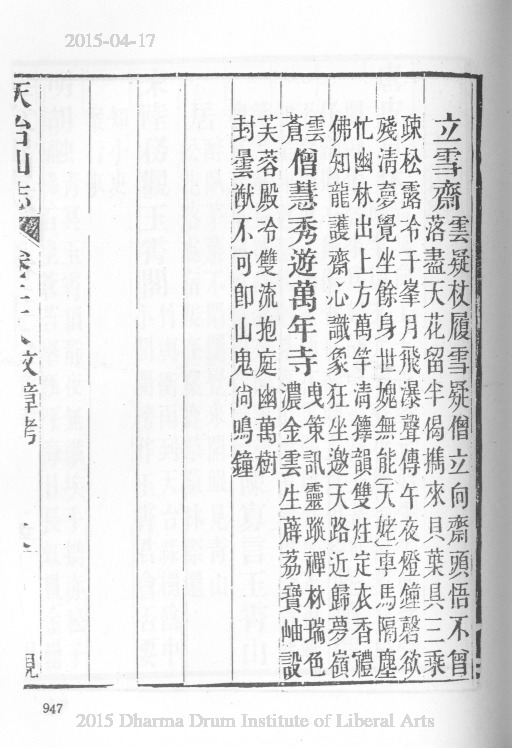 2015-04-17
立雪齋
雲疑杖履雪疑僧立向齋頭悟不曾
落盡天花留半偈攜來貝葉具三乘
疎松露冷千峯月飛瀑聲傳午夜燈鐘磬欲
殘清夢覺坐餘身世媿無能天姥車馬隔塵
忙幽林出上方萬竿清籜韻雙炷定衣香禮
佛知龍護齋心識象狂坐邀天路近歸夢嶺
雲
蒼
僧慧秀遊萬年寺
曳策訊靈蹤禪林瑞色
濃金雲生薜荔寶岫設
芙蓉殿冷雙流抱庭幽萬樹
封曇猷不可卽山鬼尙鳴鐘
天台山志
文章考
947
2015 Dharma Drum Institute of Liberal Arts